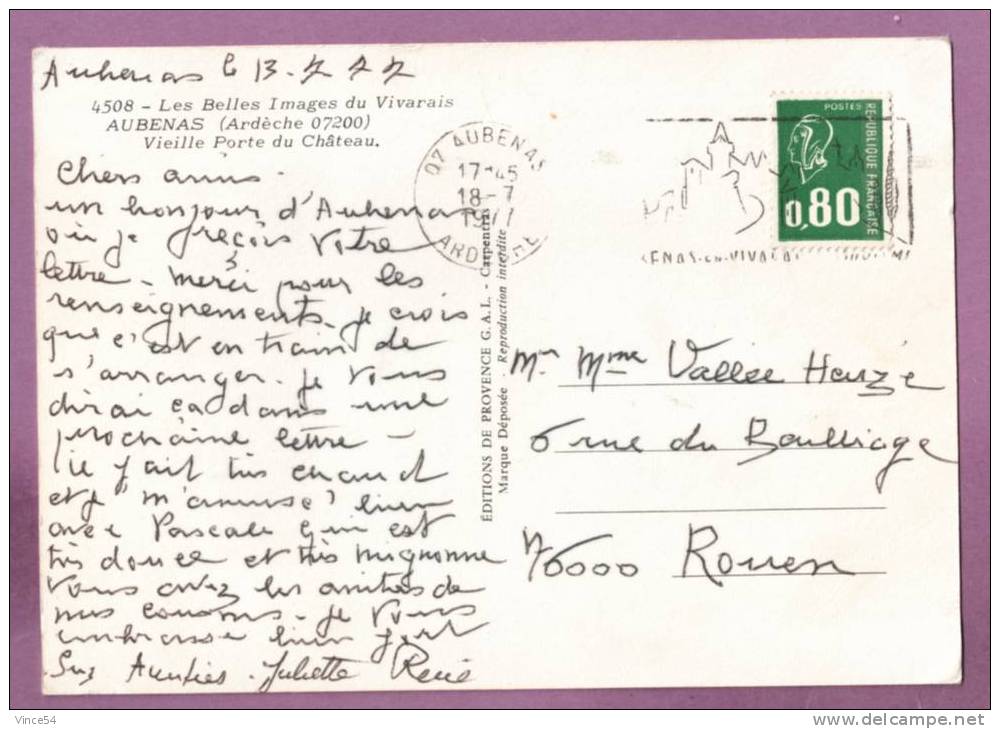 Aubenas le 13.7.77
4508 - Les Belles Images du Vivarais
AUBENAS (Ardèche 07200)
Vieille Porte du Château.
Chers amis -
un bonjour d'Aubenas
où je reçois votre
lettre - merci pour les
renseignements. je crois
que c'est en train de
s'arranger. je vous
dirai ca dans une
prochaine lettre -
il fait très chaud
et je m'amuse bien
avec Pascale qui est
très douce et très mignonne
Vous avez les amitiés de
nos cousins - je vous
embrasse bien fort
Juliette René
ÉDITIONS DE PROVENCE G.A.L. - Carpentras
Marque Déposée - Reproduction interdite
07 AUBENAS
17-45
18-7
1977
ARDECHE
POSTES
REPUBLIQUE FRANÇAISE
0,80
Mr Mme Vallée Heuzé
6 rue du Bailliage
76000 Rouen
Vince54
www.delcampe.net